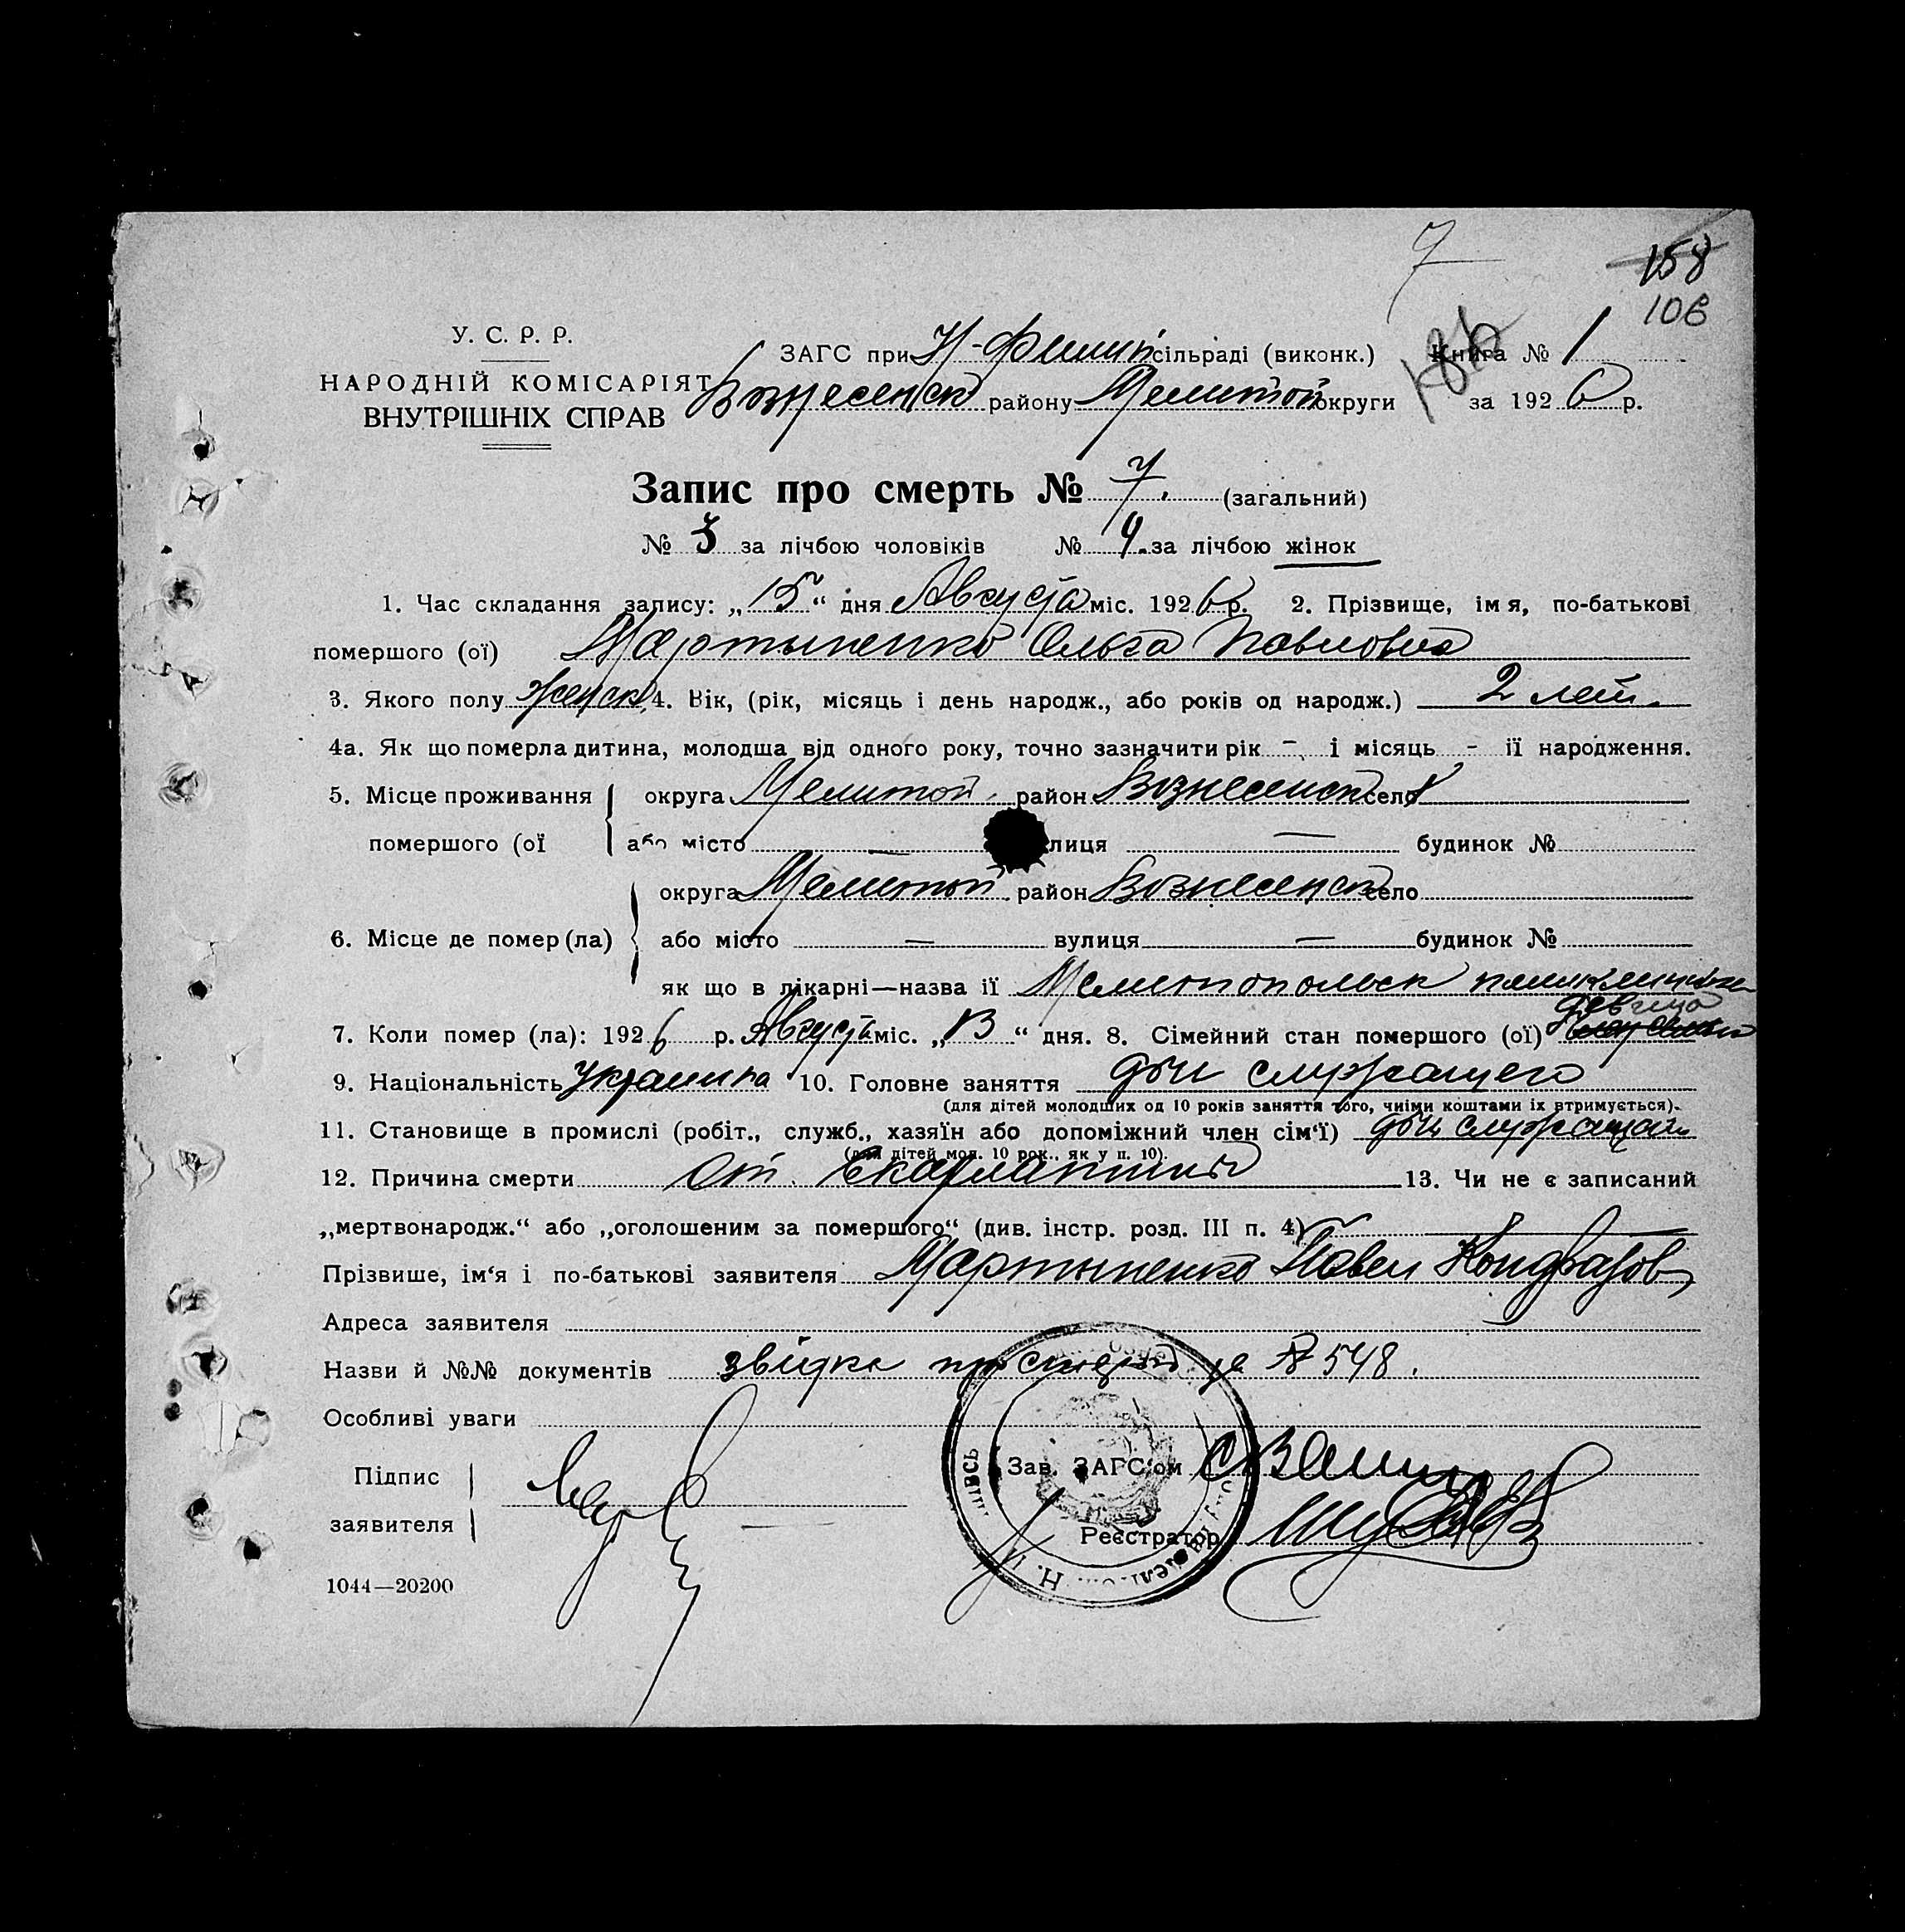 7
158
106
У. С. Р. Р.
ЗАГС при Н-Филип сільраді (виконк.) Книга № 1
НАРОДНІЙ КОМІСАРІЯТ
ВНУТРІШНІХ СПРАВ
Вознесенск району Мелитоп округи за 1926 р.
Запис про смерть № 7. (загальний)
№ 3 за лічбою чоловіків № 4. за лічбою жінок
1. Час складання запису: „15“ дня Августа міс. 1926 р. 2. Прізвище, імя, по-батькові
помершого (ої) Мартыненко Ольга Павловна
3. Якого полу женск. 4. Вік, (рік, місяць і день народж., або років од народж.) 2 лет.
4а. Як що померла дитина, молодша від одного року, точно зазначити рік - і місяць - ії народження.
5. Місце проживання округа Мелитоп. район Вознесенск село
помершого (ої або місто — лиця — будинок №
округа Мелитоп. район Вознесенск село
6. Місце де помер (ла) або місто — вулиця — будинок №
як що в лікарні—назва ії Мелитопольск
девица
7. Коли помер (ла): 1926 р. Августа міс. „13“ дня. 8. Сімейний стан помершого (ої)
9. Національність Украинка 10. Головне заняття дочь служащего
(для дітей молодших од 10 років заняття того, чиїми коштами їх втримується).
11. Становище в промислі (робіт., служб., хазяїн або допоміжний член сім‘ї) служащ
(для дітей мол. 10 рок., як у п. 10).
12. Причина смерти от скарлатины 13. Чи не є записаний
„мертвонародж.“ або „оголошеним за помершого“ (див. інстр. розд. III п. 4) —
Прізвише, ім‘я і по-батькові заявителя Мартыненко Павел Кондратов
Адреса заявителя
Назви й №№ документів звідка про смерть за № 548.
Особливі уваги
Підпис
заявителя
Зав. ЗАГС‘ом
Реєстратор
1044—20200